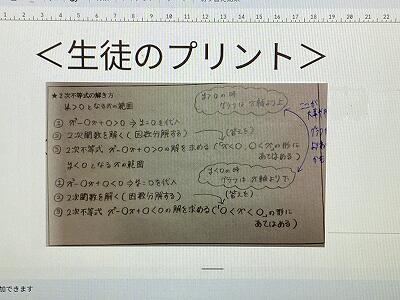 <生徒のプリント>
★2次不等式の解き方
y>0となるxの範囲
y>0の時
グラフはx軸より上
ここが
① x²-○x+○>0 ⇒ y=0を代入
② 2次関数を解く(因数分解する)
(答えを)
③ 2次不等式 x²-○x+○>0の解を求める(「x<○,○<x」の形に
あてはめる)
y<0となるxの範囲
y<0の時
グラフはx軸より下
① x²-○x+○<0 ⇒ y=0を代入
② 2次関数を解く(因数分解する)
(答えを)
③ 2次不等式 x²-○x+○<0の解を求める(「○<x<○」の形に
あてはめる)
加できます